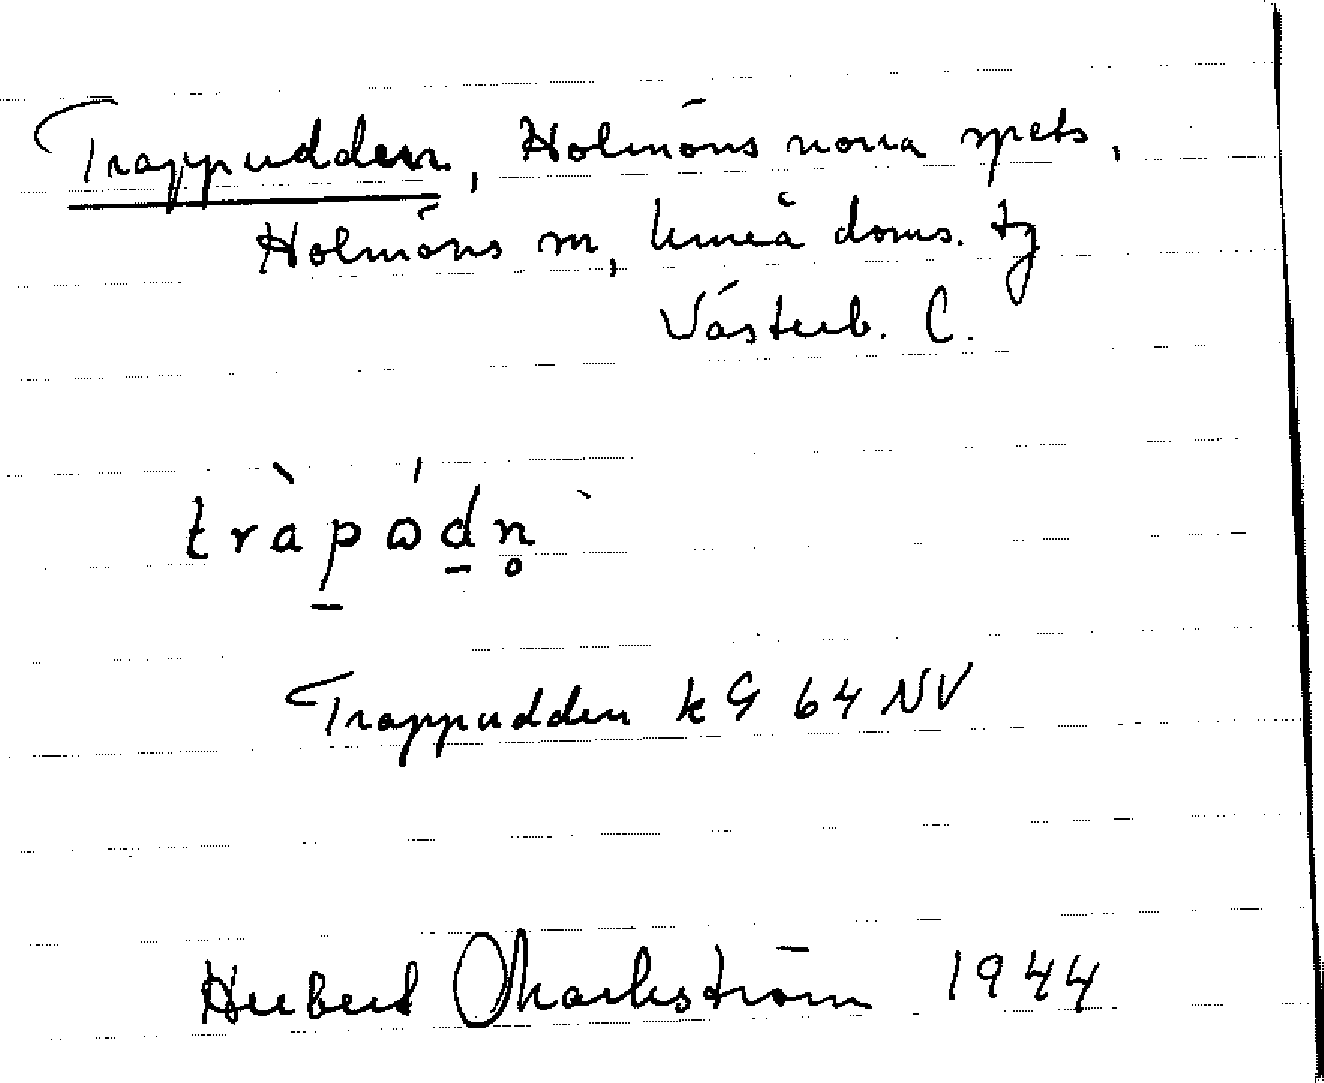 Trappudden, Holmöns norra spets,
Holmöns sn, Umeå doms. tg
Västerb. l.
tràpω̍d̲n̥
Trappudden k G 64 NV
Herbert Markström 1944